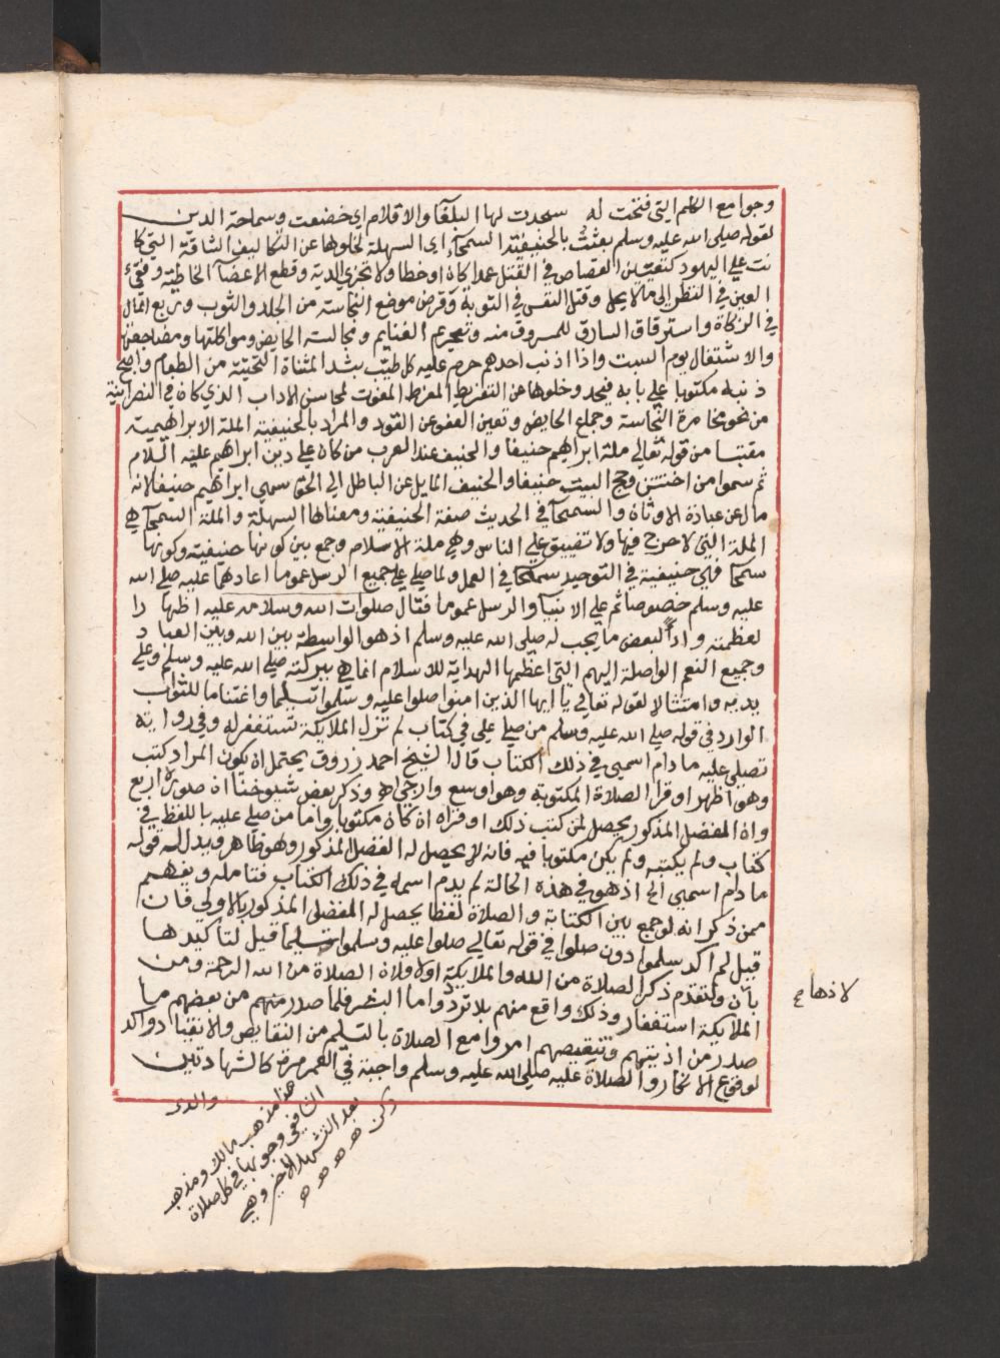 وجوامع الكلم التي فتحت له سجدت لها البلغآ والاقلام اي خضعت وسماحة الدين
لقوله صلى الله عليه وسلم بعثت بالحنيفية السمحآء اي السهلة لخلوها عن التكاليف الشاقة التي كا
نت على اليهود كتعين القصاص في القتل عمدا كان او خطا ولا تجزي الدية وقطع الاعضآ الخاطية وفقء
العين في النظر الى ما لا يحل وقتل النفس في التوبة وقرض موضع النجاسة من الجلد والثوب وربع المال
في الزكاة واسترقاق السارق للمسروق منه وتحريم الغنايم ومجالسة الحايض ومواكلتها ومضاجعتها
والاشتغال يوم السبت واذا اذنب احدهم حرم عليه كل طيب بشد المثناة التحتية من الطعام واصبح
ذنبه مكتوبا على بابه فيحد وخلوها عن التفريط المفرط المفوت لمحاسن الاداب الذي كان في النصرانية
من نحو مخامرة النجاسة وجماع الحايض وتعين العفو عن القود والمراد بالحنيفية الملة الابراهيمية
مقتبسا من قوله تعالى ملة ابراهيم حنيفا والحنيف عند العرب من كان على دين ابراهيم عليه السلام
ثم سموا من اختتن وحج البيت حنيفا والحنيف المايل عن الباطل الى الحق سمي ابراهيم حنيفا لانه
مال عن عبادة الاوثان والسمحآ في الحديث صفة الحنيفية ومعناها السهلة والملة السمحآ هي
الملة التي لا حرج فيها ولا تضييق على الناس وهي ملة الاسلام وجمع بين كونها حنيفية وكونها
سمحا فهي حنيفية في التوحيد سمحا في العمل ولما صلى على جميع الرسل عموما اعادها عليه صلى الله
عليه وسلم خصوصا ثم على الانبيا والرسل عموما فقال صلوات الله وسلامه عليه اظهارا
لعظمته واداً لبعض ما يجب له صلى الله عليه وسلم اذ هو الواسطة بين الله وبين العباد
وجميع النعم الواصلة اليهم التي اعظمها الهداية للاسلام انما هي ببركته صلى الله عليه وسلم وعلى
يديه وامتثالا لقوله تعالى يا ايها الذين امنوا صلوا عليه وسلموا تسليما واغتناما للثواب
الوارد في قوله صلى الله عليه وسلم من صلى علي في كتاب لم تزل الملايكة تستغفر له وفي رواية
تصلي عليه ما دام اسمي في ذلك الكتاب قال الشيخ احمد زروق يحتمل ان يكون المراد كتب
وهو اظهر او قرا الصلاة المكتوبة وهو اوسع وارجى اه وذكر بعض شيوخنا ان صوره اربع
وان الفضل المذكور يحصل لمن كتب ذلك او قراه ان كان مكتوبا واما من صلى عليه باللفظ في
كتاب ولم يكتبه ولم يكن مكتوبا فيه فانه لا يحصل له الفضل المذكور وهو ظاهر ويدل له قوله
ما دام اسمي الخ اذ هو في هذه الحالة لم يدم اسمه في ذلك الكتاب فتامله ويفهم
ممن ذكر انه لو جمع بين الكتابة والصلاة لفظا يحصل له الفضل المذكور بالاولى فان
قيل لم اكد سلموا دون صلوا في قوله تعالى صلوا عليه وسلموا تسليما قيل لتاكيدها
بان ولتقدم ذكر الصلاة من الله والملايكة اولا ولان الصلاة من الله الرحمة ومن
الملايكة استغفار وذلك واقع منهم بلا تردد واما البشر فلما صدر منهم من بعضهم ما
صدر من اذيتهم وتنقيصهم امروا مع الصلاة بالتسليم من النقايص والانقياد واكد
لوقوع الانكار والصلاة عليه صلى الله عليه وسلم واجبة في العمر مرة كالشهادتين
لاذها ع
والدى
هذا مذهب مالك ومذهب
الشافعي وجوبها في كل صلاة
بعد التشهد الاخير وهي
ركن ه ه ه ه